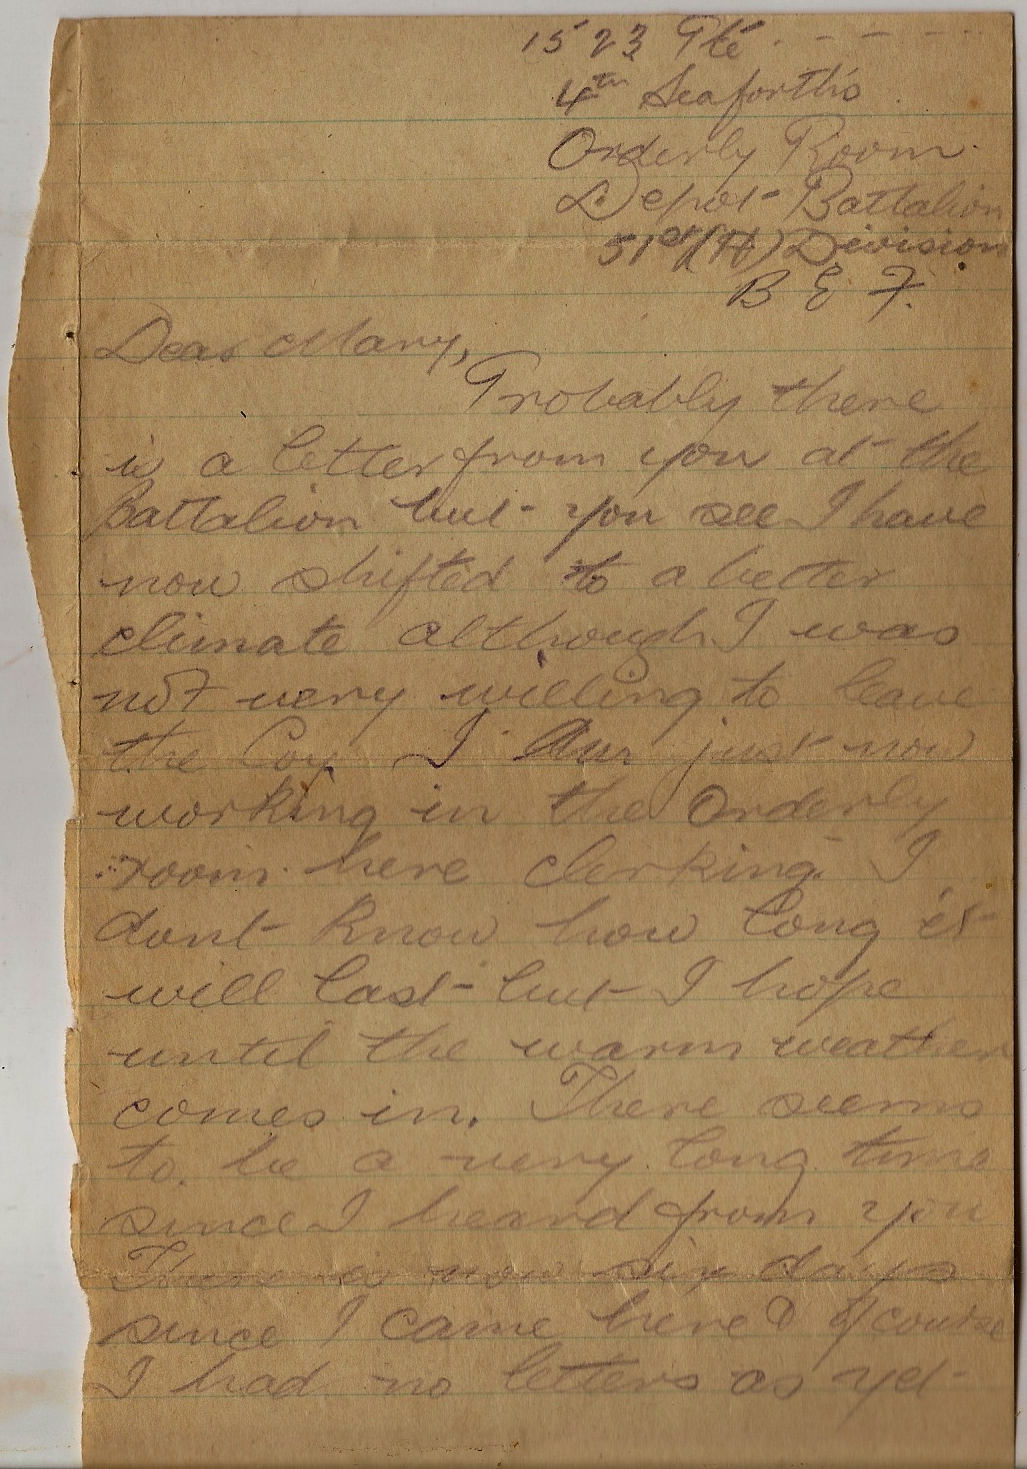 1523 Pte. - - - - -
4th Seaforths
Orderly Room
Depot Battalion
51st (H) Division
B E F.
Dear Mary,
Probably there
is a letter from you at the
Battalion but you see I have
now shifted to a better
climate although I was
not very willing to leave
the Coy I am just now
working in the Orderly
room here clerking. I
dont know how long it
will last but I hope
until the warm weather
comes in. There seems
to be a very long time
since I heard from you
There is now six days
since I came here & of course
I had no letters as yet